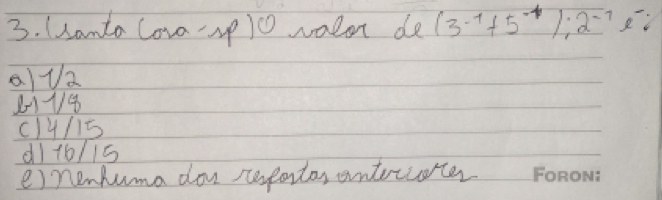 3. (santa Cosa-sp) O valor de (3⁻¹+5⁻¹):2⁻¹ é:
a) 1/2
b) 1/8
c) 4/15
d) 16/15
e) Nenhuma das respostas anteriores
FORONI